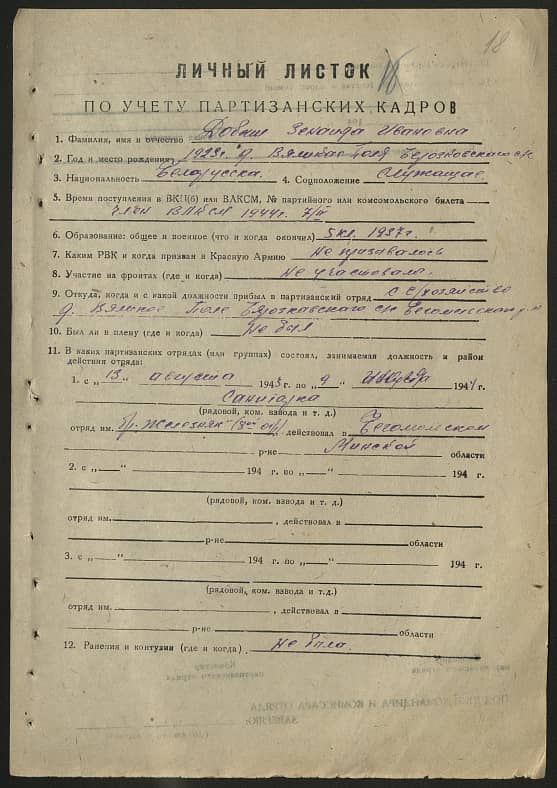 18
ЛИЧНЫЙ ЛИСТОК 18
ПО УЧЕТУ ПАРТИЗАНСКИХ КАДРОВ
1. Фамилия, имя и отчество Ивановна
2. Год и место рождения 1923 г. д. Поле с/с
3. Национальность Белорусска 4. Соцположение Служащая
5. Время поступления в ВКП(б) или ВЛКСМ, № партийного или комсомольского билета
член ВЛКСМ 1944 г.
6. Образование: общее и военное (что и когда окончил) 5 кл. 1937 г.
7. Каким РВК и когда призван в Красную Армию Не призывалась
8. Участие на фронтах (где и когда) Не участвовала
9. Откуда, когда и с какой должности прибыл в партизанский отряд с С/хозяйства
д. Поле с/с р-н
10. Был ли в плену (где и когда) Не был
11. В каких партизанских отрядах (или группах) состоял, занимаемая должность и район
действия отряда:
1. с „13“ августа 1943 г. по „9“ 1944 г.
Санитарка
(рядовой, ком. взвода и т. д.)
отряд им. бр. Железняк действовал в Бегомльском
р-не Минской области
2. с „ “ 194 г. по „ “ 194 г.
(рядовой, ком. взвода и т. д.)
отряд им. , действовал в
р-не области
3. с „ “ 194 г. по „ “ 194 г.
(рядовой, ком. взвода и т.д.)
отряд им. , действовал в
р-не области
12. Ранения и контузии (где и когда) не была